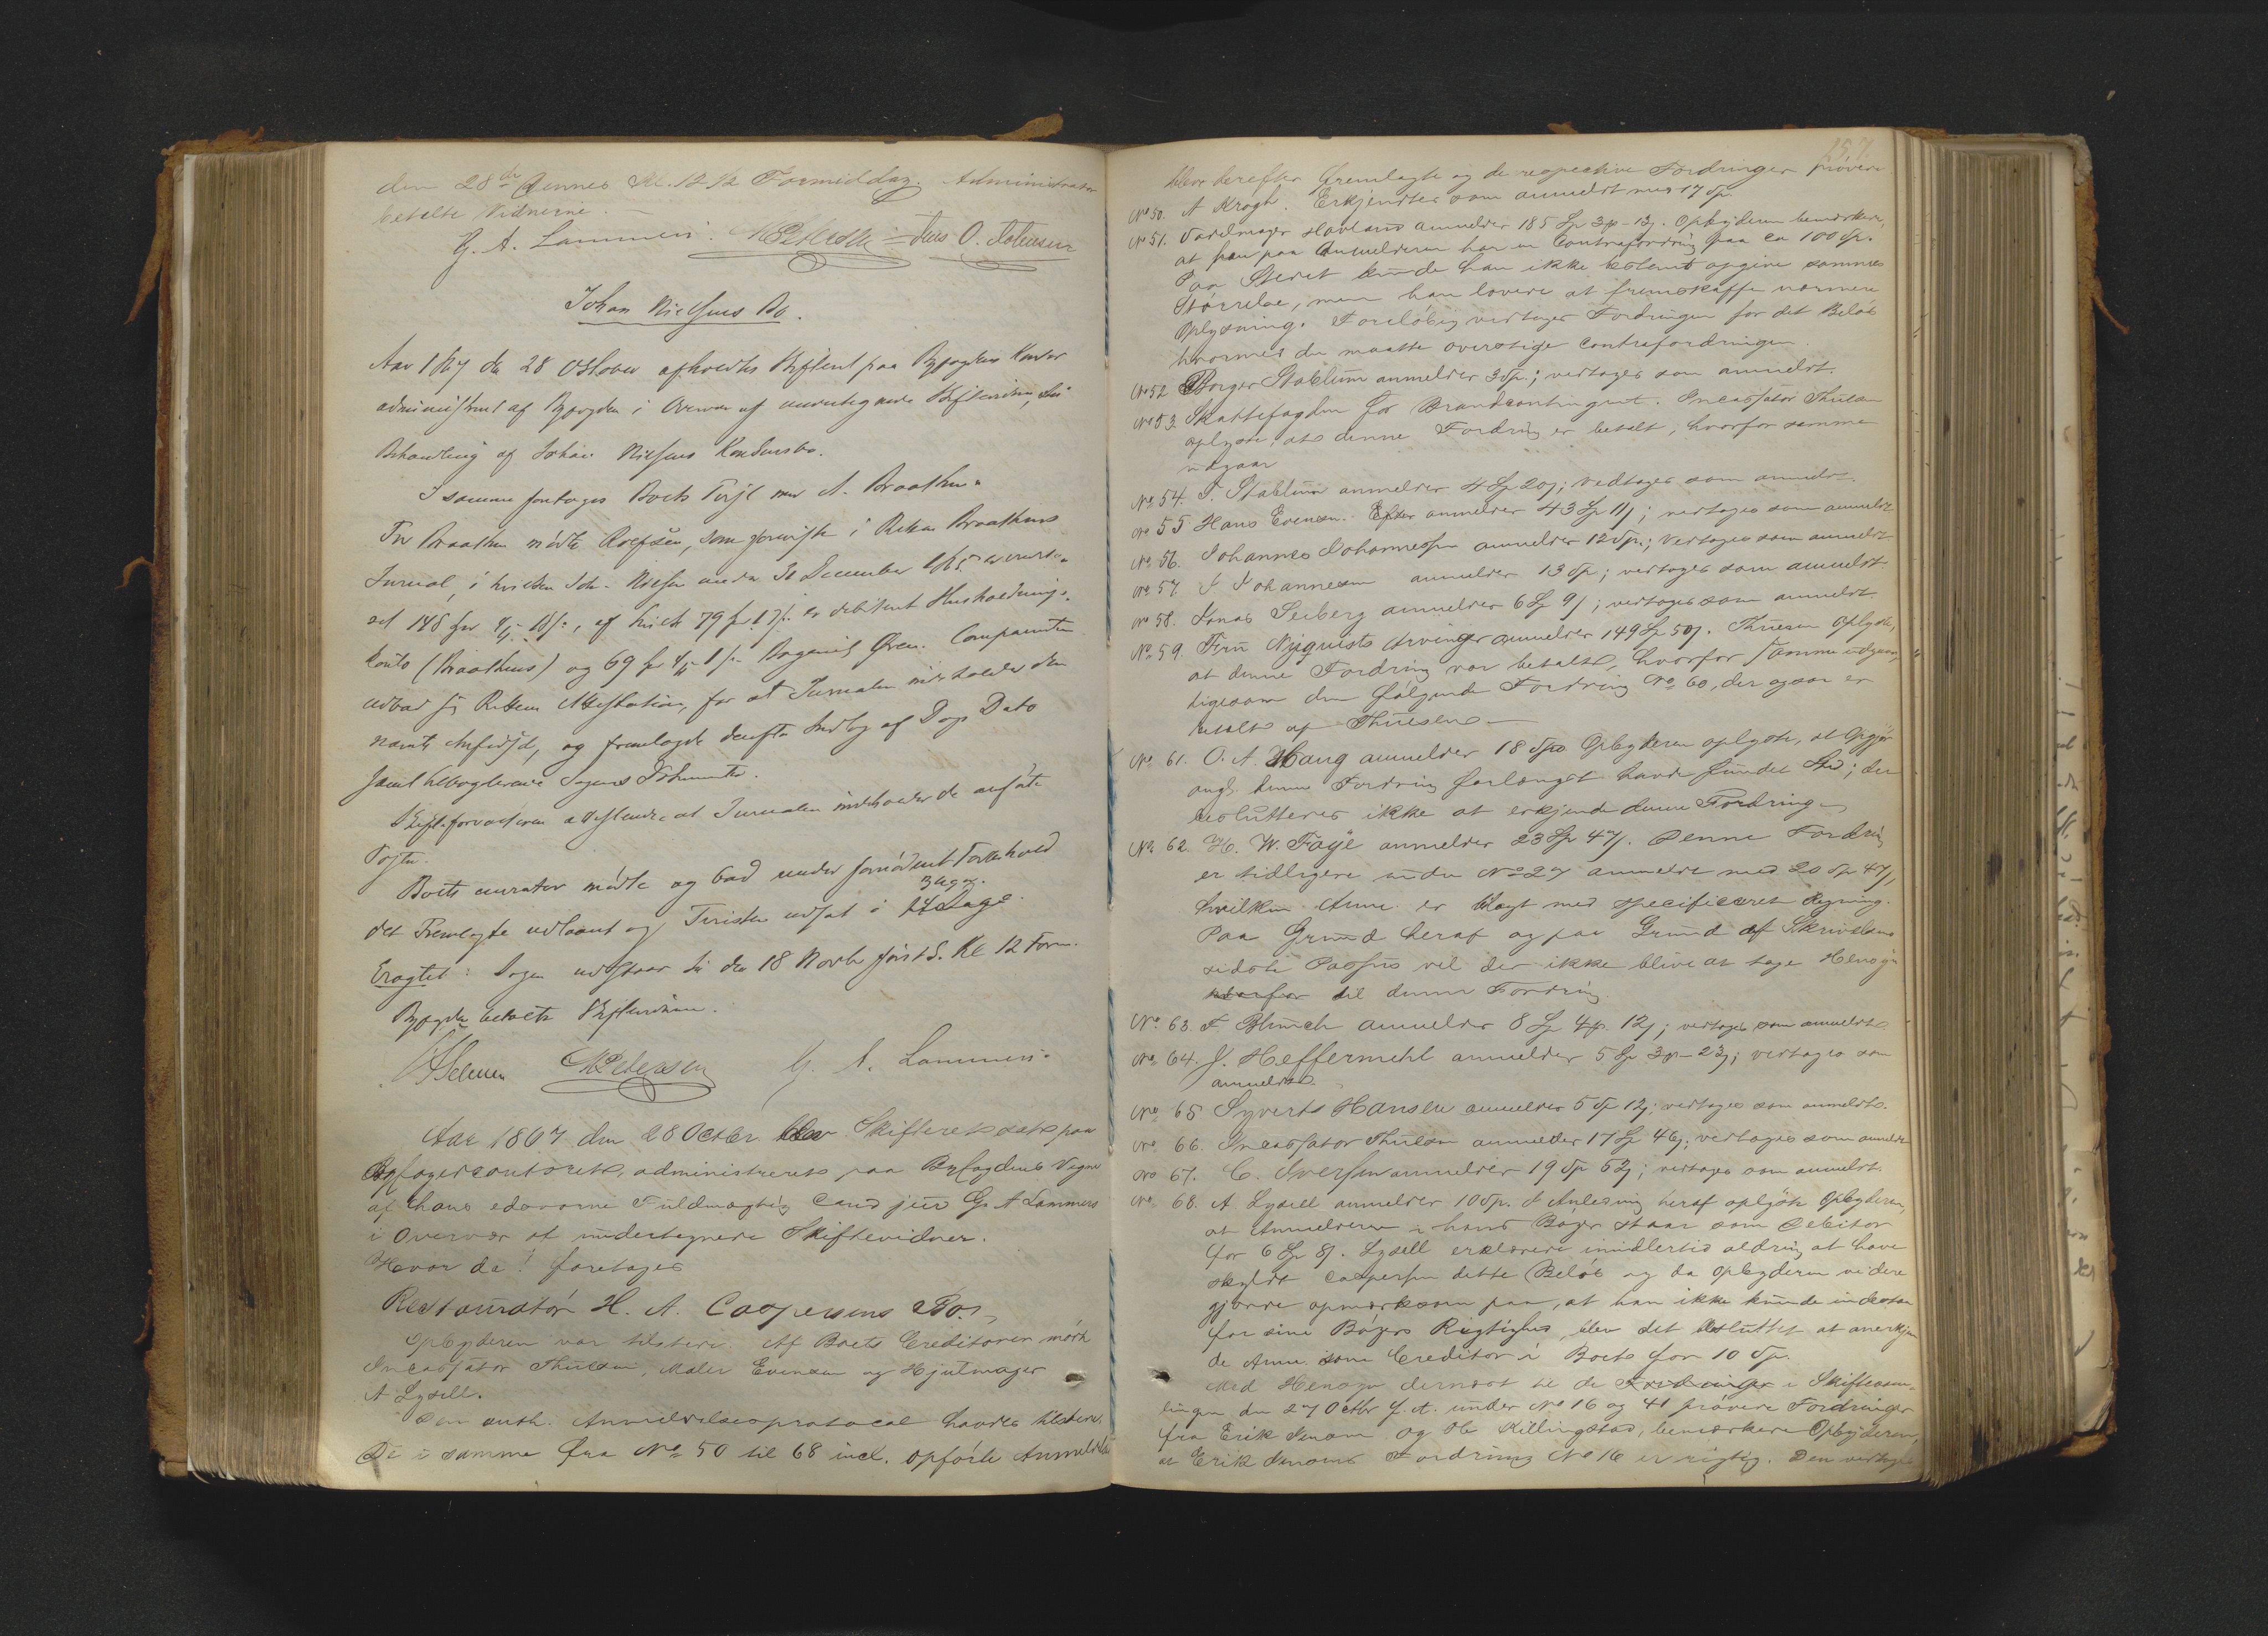 den 28de dennes Kl. 12 1/2 Formiddag. Administrator
betalte Vidnerne.
G. A. Lammers. Petersen Jens O. Johnsen
Johan Nielsens Bo.
Aar 1867 den 28 October afholdtes Skifteret paa Byfogdens Kontor
administreret af Byfogden i Overvær af undertegnede Skiftevidner, til
Behandling af Johan Nielsens Konkursbo.
I samme foretages Boets Sag med A. Braathen.
For Braathen mødte som i Retten Braathens
Jurnal, i hvilken Joh. Nielsen under 31 December 1865 er
148 79 er debiteret Husholdnings-
konto (Braathens) og 69
udbad sig Rettens Attestation, for at Jurnalen indeholder den
nævnte og fremlagde derefter Indlæg af Dags Dato
samt
Skifteforvalteren attesterede at Jurnalen indeholder de anførte
Poster.
Boets curator mødte og bad under fornødent Forbehold
3 Uger.
det Fremlagte udlaant og Tvisten udsat i Dage.
Eragtet: Sagen udstaar til den 18 Novbr førsts. Kl 12 Form.
Byfogden betalte Skiftevidnerne.
Petersen G. A. Lammers.
Aar 1867 den 28 Octbr. blev Skifteret sat paa
Byfogedcontoret, administreret paa Byfogdens Vegne
af hans edsvorne Fuldmægtig Cand jur G. A Lammers
i Overvær af undertegnede Skiftevidner.
Hvor da! foretages
Restauratør H. A. Caspersens Bo.
Opbyderen var tilstede. Af Boets Creditorer mødte
Incassator Thuesen, Maler Evensen og Hjulmager
A Lydell.
Den auth. Anmeldelsesprotocol havdes tilstede.
De i samme fra No 50 til 68 incl. opførte Anmeldelser
157
blev derefter fremlagte og de respective Fordringer prøvede
No 50. A Krogh. Erkjendtes som anmeldt med 17 Sp.
No 51. Sadelmager Hovland anmelder 185 Sp 3 - 12. Opbyderen bemærkede,
at han paa Anmelderen har en Contrafordring paa ca 100 Sp.
Paa Stedet kunde han ikke bestemt opgive sammes
Størrelse, men han lovede at fremskaffe nærmere
Oplysning. Foreløbig vedtages Fordringen for det Beløb
hvormed den maatte overstige Contrafordringen.
No 52 Borger Stablum anmelder 3 Sp.; vedtages som anmeldt.
No 53 Skattefogden for Brandcontingent. Incassator Thuesen
oplyste, at denne Fordring er betalt, hvorfor samme
udgaar
No 54. Stablum anmelder 4 Sp 20; vedtages som anmeldt.
No 55 Hans Evensen. Efter anmelder 43 Sp 11; vedtages som anmeldt
No 56. Johannes Johannesen anmelder 12 Sp.; vedtages som anmeldt
No 57 Johannesen anmelder 13 Sp; vedtages som anmeldt.
No 58. Jonas Seeberg anmelder 6 Sp 9; vedtages som anmeldt.
No 59. Fru Nyquists Arvinger anmelder 149 Sp 50. Thuesen oplyste,
at denne Fordring var betalt, hvorfor samme udgaar,
ligesom den følgende Fordring No 60, der ogsaa er
betalt af Thuesen
No 61. O. A. Haug anmelder 18 Spd. Opbyderen oplyste, at Opgjør
ang. denne Fordring forlængst havde fundet Sted; der
besluttedes ikke at erkjende denne Fordring.
No 62. H. W. Faye anmelder 23 Sp 47. Denne Fordring
er tidligere under No 27 anmeldt med 20 Sp 47,
hvilken Anm. er bilagt med specificeret Regning.
Paa Grund heraf og paa Grund af Skrivelsens
sidste Passus vil der ikke blive at tage Hensyn
til denne Fordring
No 63. Blunch anmelder 8 Sp 4 12; vedtages som anmeldt
No 64. J. Heffermehl anmelder 5 Sp 3 - 23; vedtages som
anmeldt.
No 65 Syvert Hansen anmelder 5 Sp 12; vedtages som anmeldt.
No 66. Incassator Thuesen anmelder 17 Sp 46; vedtages som anmeldt
No 67. C. Iversen anmelder 19 Sp 52; vedtages som anmeldt.
No 68. A. Lydell anmelder 10 Sp. I Anledning heraf oplyste Opbyderen,
at Anmelderen i hans Bøger staar som Debitor
for 6 Sp 8. Lydell erklærede imidlertid aldrig at have
skyldt Caspersen dette Beløb og da Opbyderen videre
gjorde opmærksom paa, at han ikke kunde indestaa
for sine Bøgers Rigtighed, blev det besluttet at anerkjen
de Anm. som Creditor i Boet for 10 Sp.
Med Hensyn dernæst til de Fordringer i Skiftesam-
lingen den 27 Octbr d. A. under No 16 og 41 prøvede Fordringer
fra Erik Imann og Killingstad, bemærkede Opbyderen,
at Erik Fordring No 16 er rigtig. Den vedtages